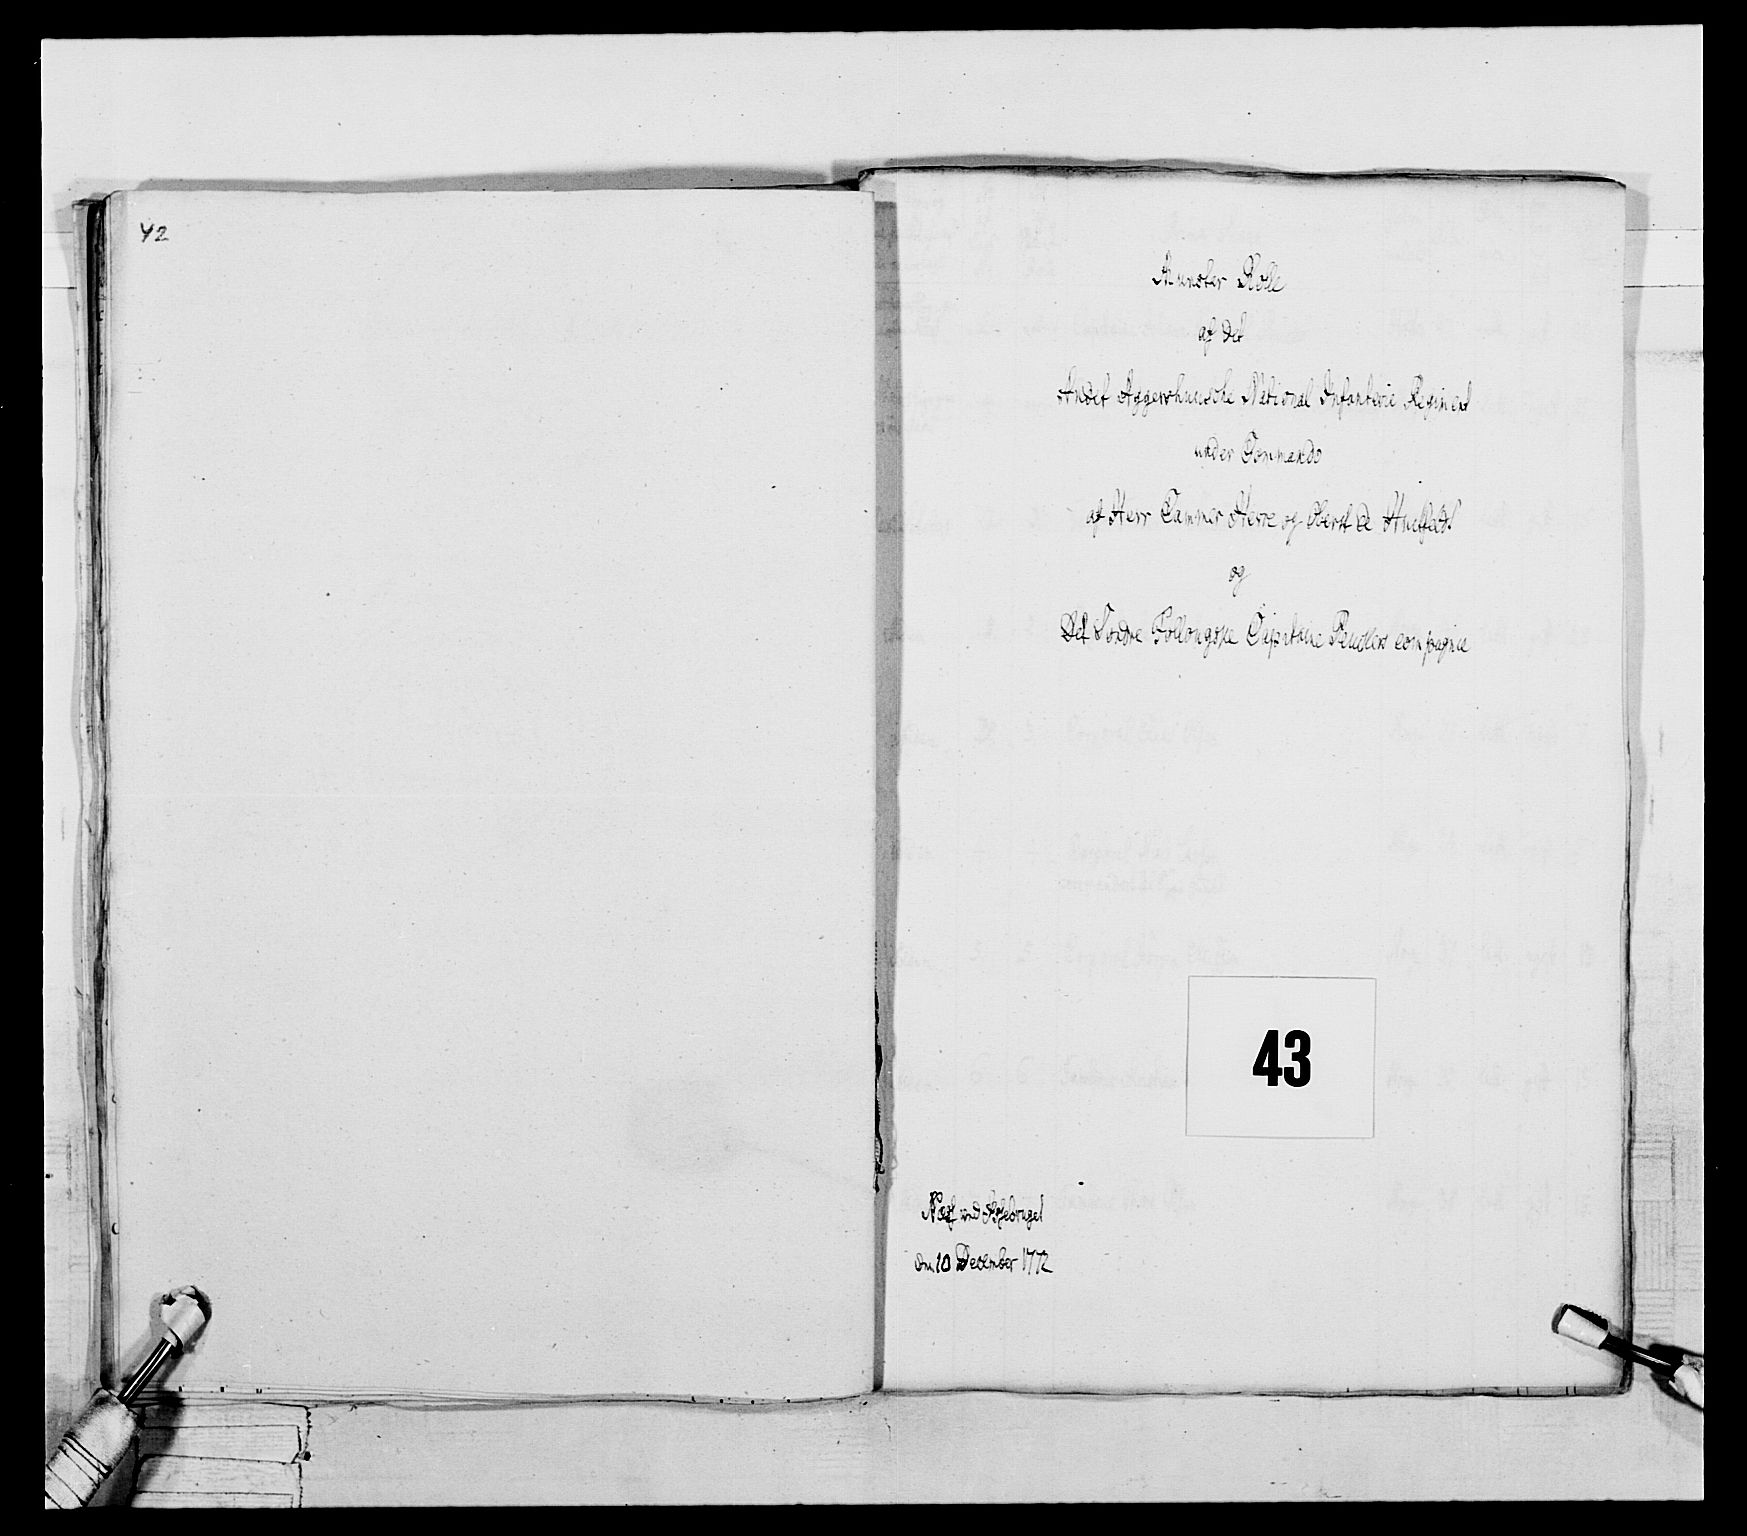 42
Munster Rolle
af det
Andet Aggershuusche National Infanterie Regiment
under Commando
af Herr Cammer Herre og Oberst de Huitfeldt
og
Det Søndre Follougske Capitaine compagnie
43
Næst ved
dm 10 December 1772